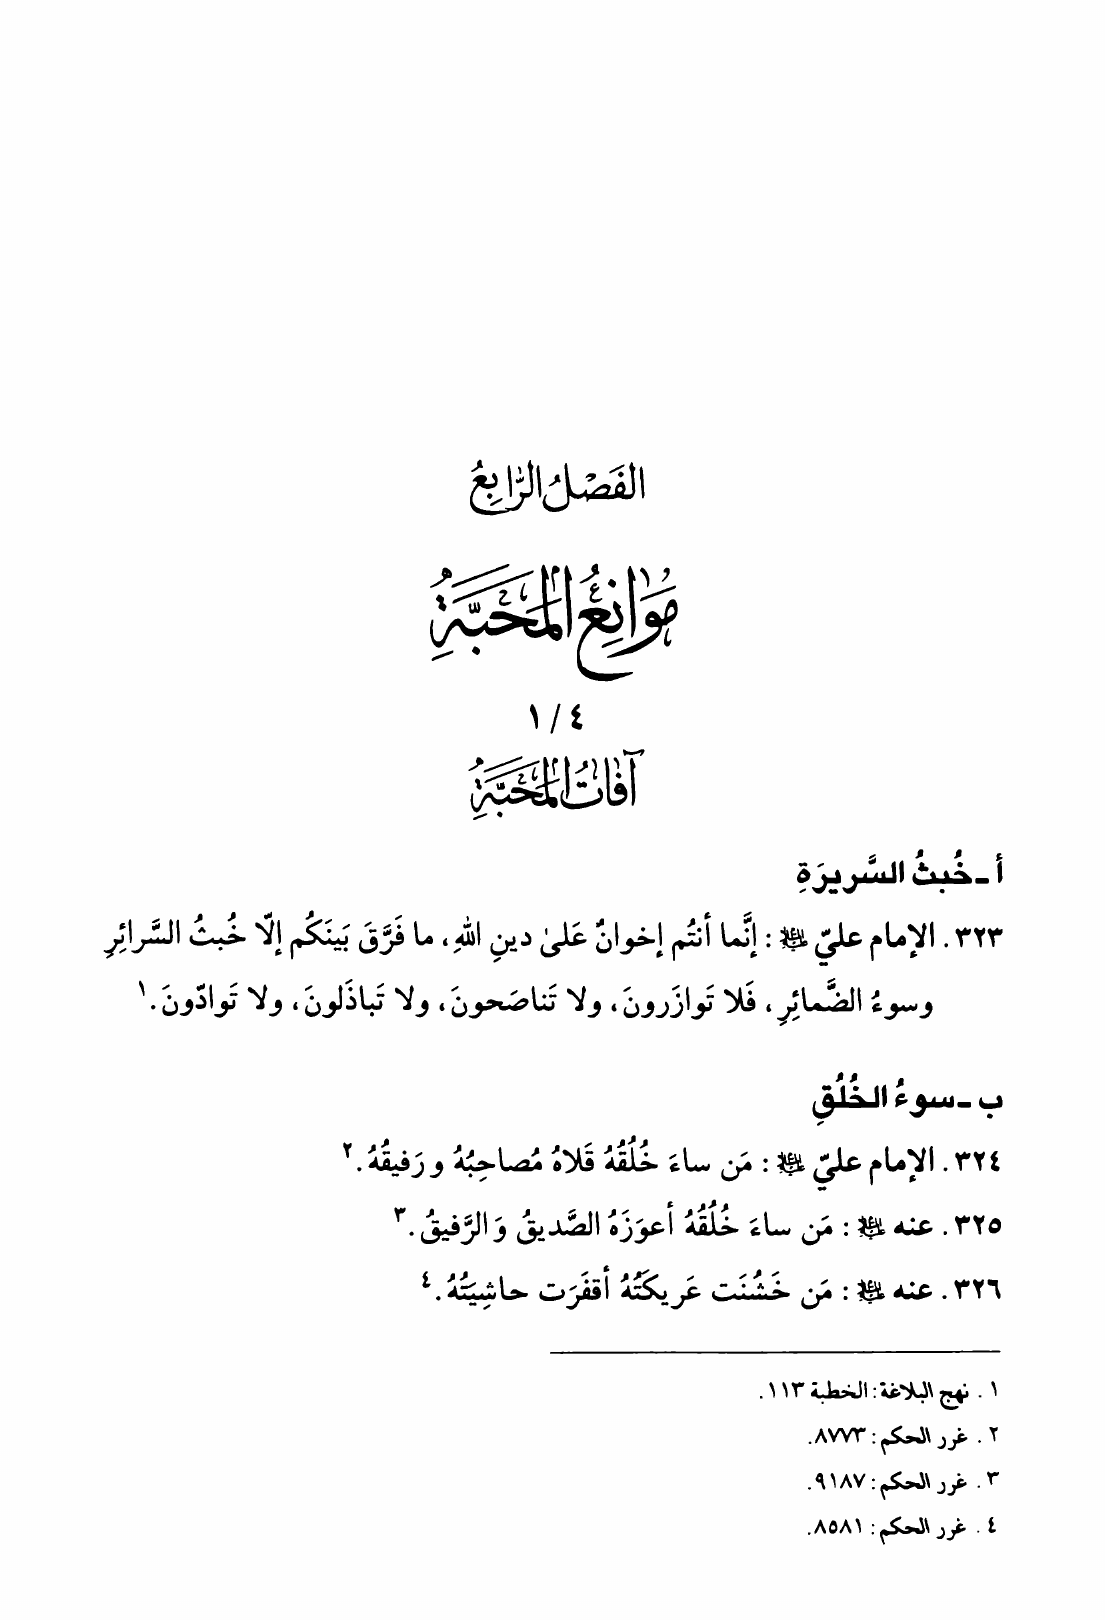 الفَصْلُ الرّابِعُ
مَوانِعُ المَحَبَّةِ
٤ / ١
آفاتُ المَحَبَّةِ
أ ـ خُبثُ السَّريرَةِ
٣٢٣. الإمام عليّ ﷷ: إنَّما أنتُم إخوانٌ عَلىٰ دينِ اللهِ، ما فَرَّقَ بَينَكُم إلّا خُبثُ السَّرائِرِ
وسوءُ الضَّمائِرِ، فَلا تَوازَرونَ، ولا تَناصَحونَ، ولا تَباذَلونَ، ولا تَوادّونَ.١
ب ـ سوءُ الخُلُقِ
٣٢٤. الإمام عليّ ﷷ: مَن ساءَ خُلُقُهُ قَلاهُ مُصاحِبُهُ و رَفيقُهُ.٢
٣٢٥. عنه ﷷ: مَن ساءَ خُلُقُهُ أعوَزَهُ الصَّديقُ وَ الرَّفيقُ.٣
٣٢٦. عنه ﷷ: مَن خَشُنَت عَريكَتُهُ أقفَرَت حاشِيَتُهُ.٤
١. نهج البلاغة: الخطبة ١١٣.
٢. غرر الحكم: ٨٧٧٣.
٣. غرر الحكم: ٩١٨٧.
٤. غرر الحكم: ٨٥٨١.